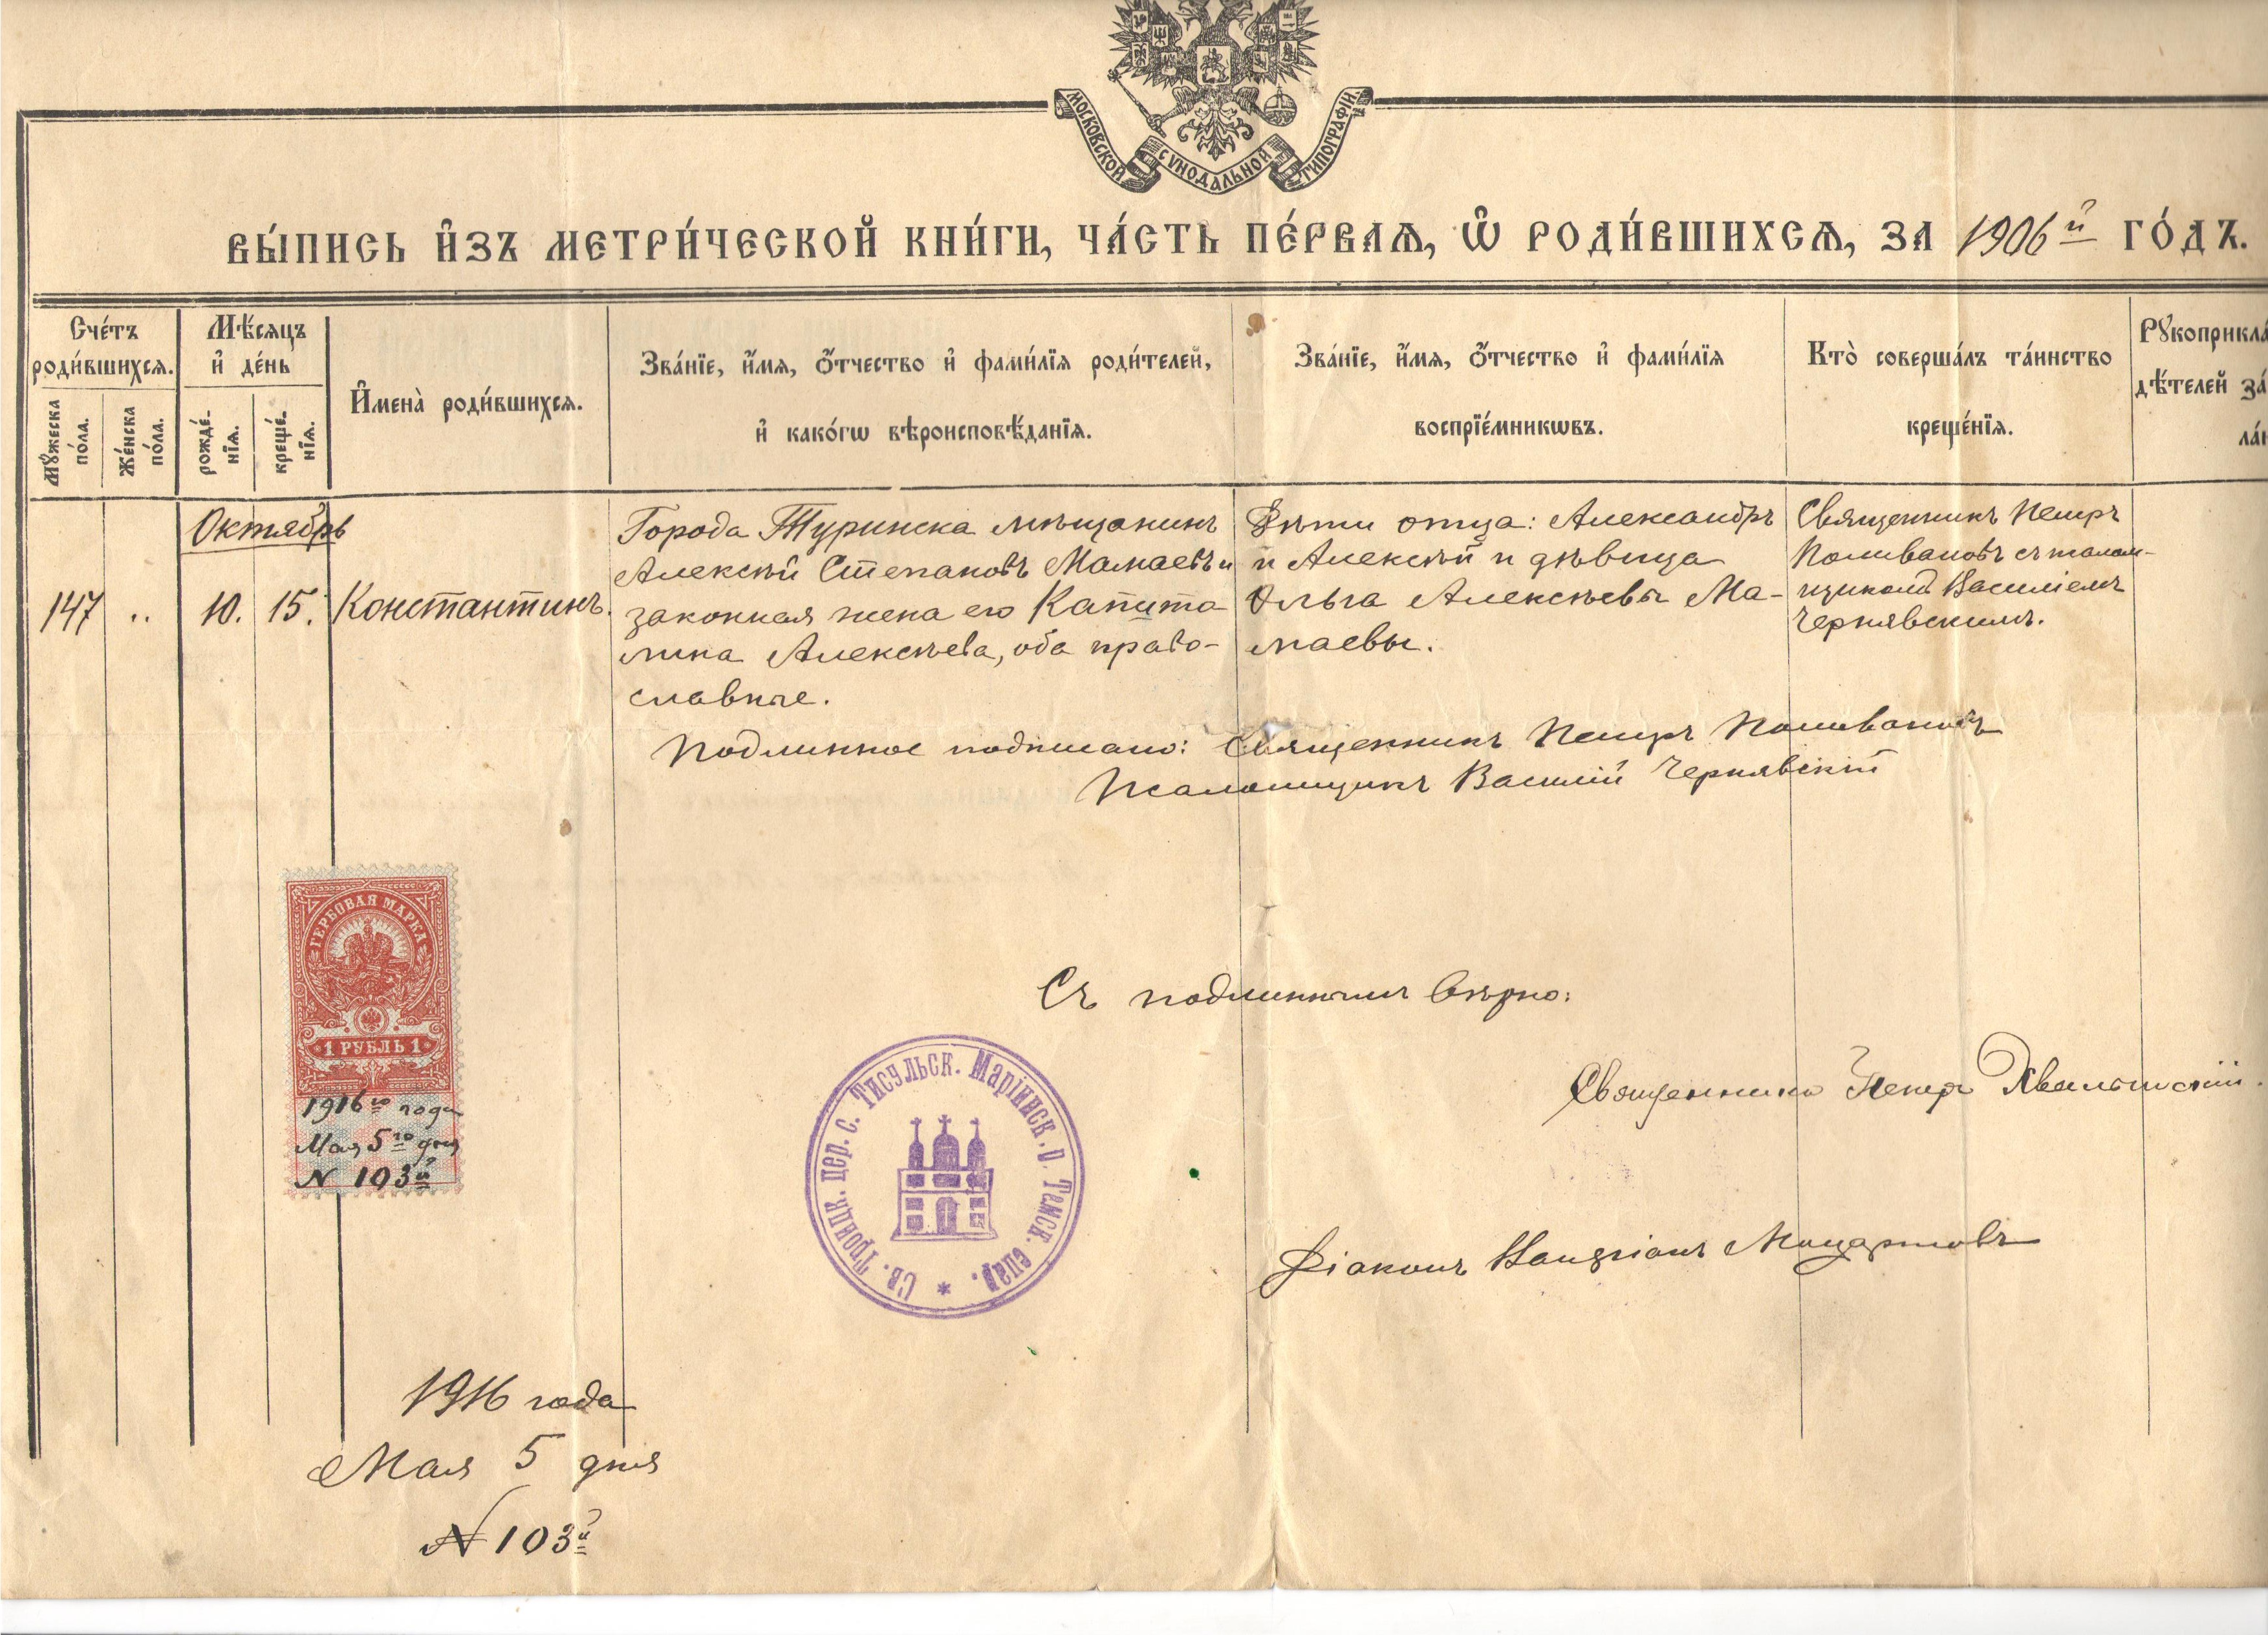 МОСКОВСКОЙ СѴНОДАЛЬНОЙ ТИПОГРАФІИ
ВЫ́ПИСЬ И҆ЗЪ МЕТРИ́ЧЕСКОЙ КНИ́ГИ, ЧА́СТЬ ПЕ́РВАѦ, Ѽ РОДИ́ВШИХСѦ, ЗА 1906й ГО́ДЪ.
Сче́тъ роди́вшихсѧ.
Мꙋ́жеска по́ла.
Же́нска по́ла.
Мѣ́сяцъ и҆ де́нь
рожде́-
нїѧ.
креще́-
нїѧ.
И҆мена̀ роди́вшихсѧ.
Зва́нїе, и҆́мѧ, ѻ҆́тчество и҆ фами́лїѧ роди́телей,
и҆ како́гѡ вѣроисповѣ́данїѧ.
Зва́нїе, и҆́мѧ, ѻ҆́тчество и҆ фами́лїѧ
воспрїе́мникѡвъ.
Кто̀ соверша́лъ та́инство
креще́нїѧ.
Рꙋкоприкла́
дѣ́телей за́
ла́н
Октябрь
147
..
10.
15.
Константинъ.
Города Туринска мѣщанинъ
Алексѣй Степановъ Мамаевъ и
законная жена его Капито
лина Алексѣева, оба право-
славные.
Дѣти отца: Александръ
и Алексѣй и дѣвица
Ольга Алексѣевы Ма-
маевы.
Священникъ Петръ
Поливановъ съ псалом-
щикомъ Василіемъ
Чернявскимъ.
Подлинное подписали: Священникъ Петръ Поливановъ
Псаломщикъ Василій Чернявскій
ГЕРБОВАЯ МАРКА
1 РУБЛЬ 1
1916го года
Мая 5го дня
N 103й
Съ подлиннымъ вѣрно:
Священникъ Петръ Хвалынскій.
Св. Троицк. цер. с. Тисульск. Маріинск. у. Томск. епар. *
Діаконъ
1916 года
Мая 5 дня
N 103й